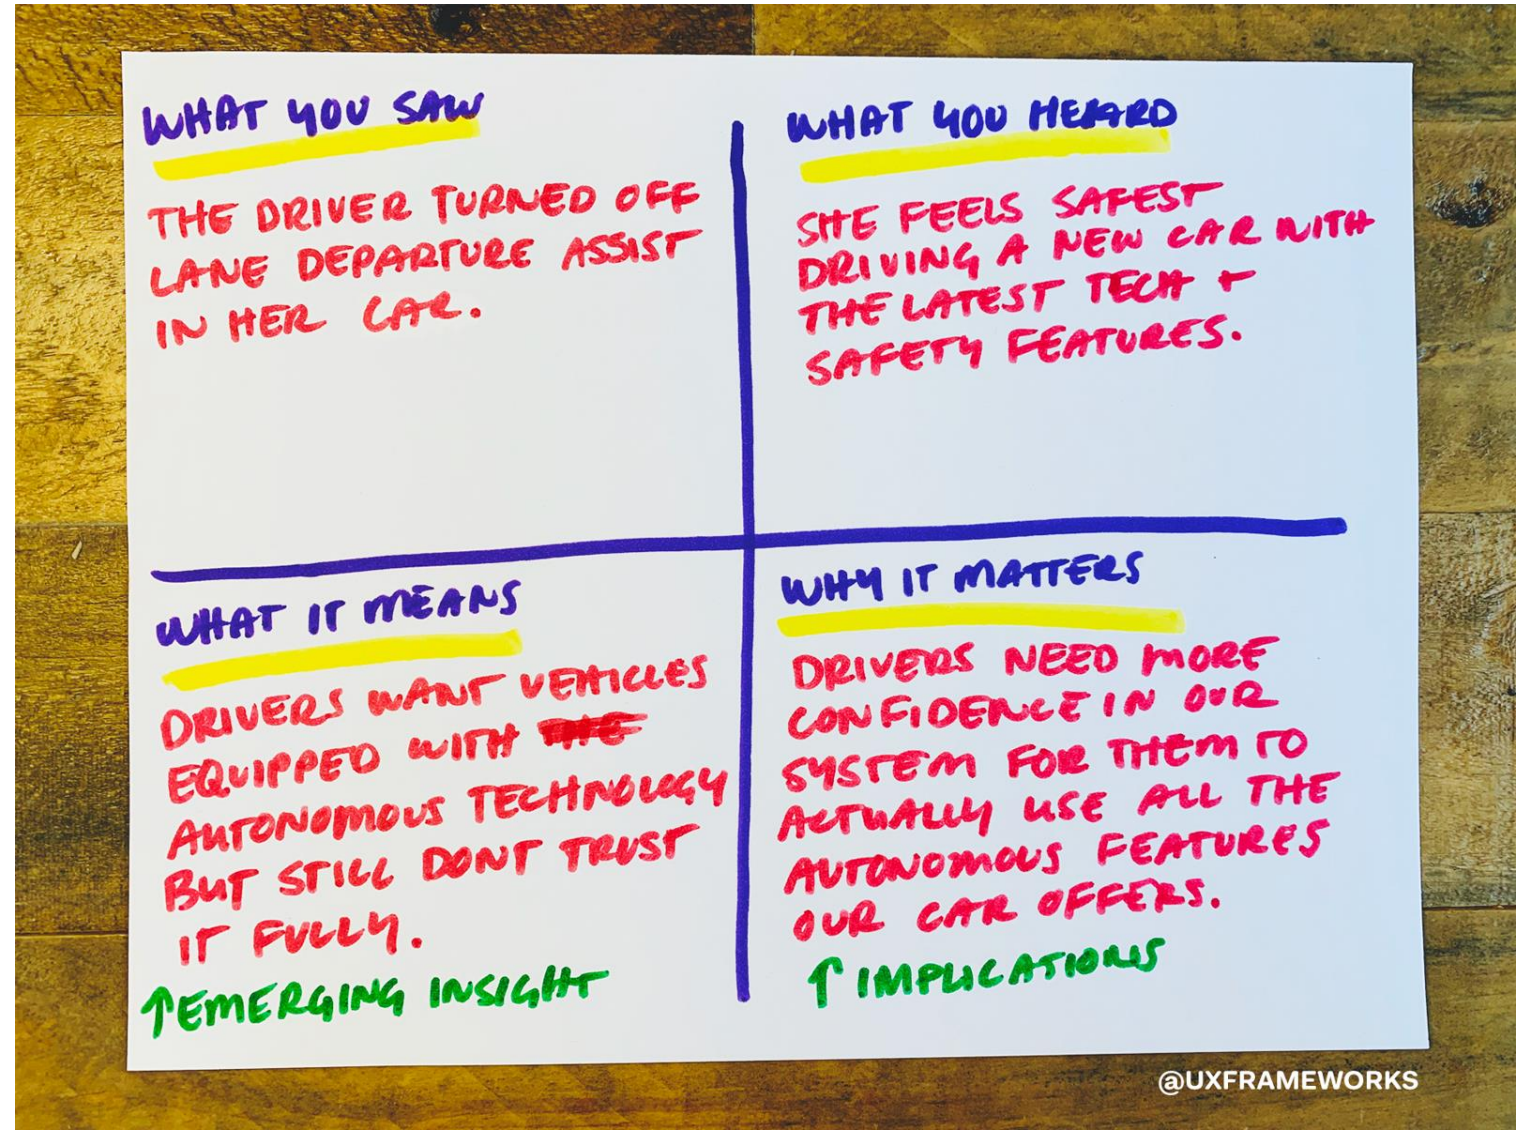 WHAT YOU SAW
THE DRIVER TURNED OFF
LANE DEPARTURE ASSIST
IN HER CAR.
WHAT YOU HEARD
SHE FEELS SAFEST
DRIVING A NEW CAR WITH
THE LATEST TECH +
SAFETY FEATURES.
WHAT IT MEANS
DRIVERS WANT VEHICLES
EQUIPPED WITH THE
AUTONOMOUS TECHNOLOGY
BUT STILL DONT TRUST
IT FULLY.
↑EMERGING INSIGHT
WHY IT MATTERS
DRIVERS NEED MORE
CONFIDENCE IN OUR
SYSTEM FOR THEM TO
ACTUALLY USE ALL THE
AUTONOMOUS FEATURES
OUR CAR OFFERS.
↑IMPLICATIONS
@UXFRAMEWORKS